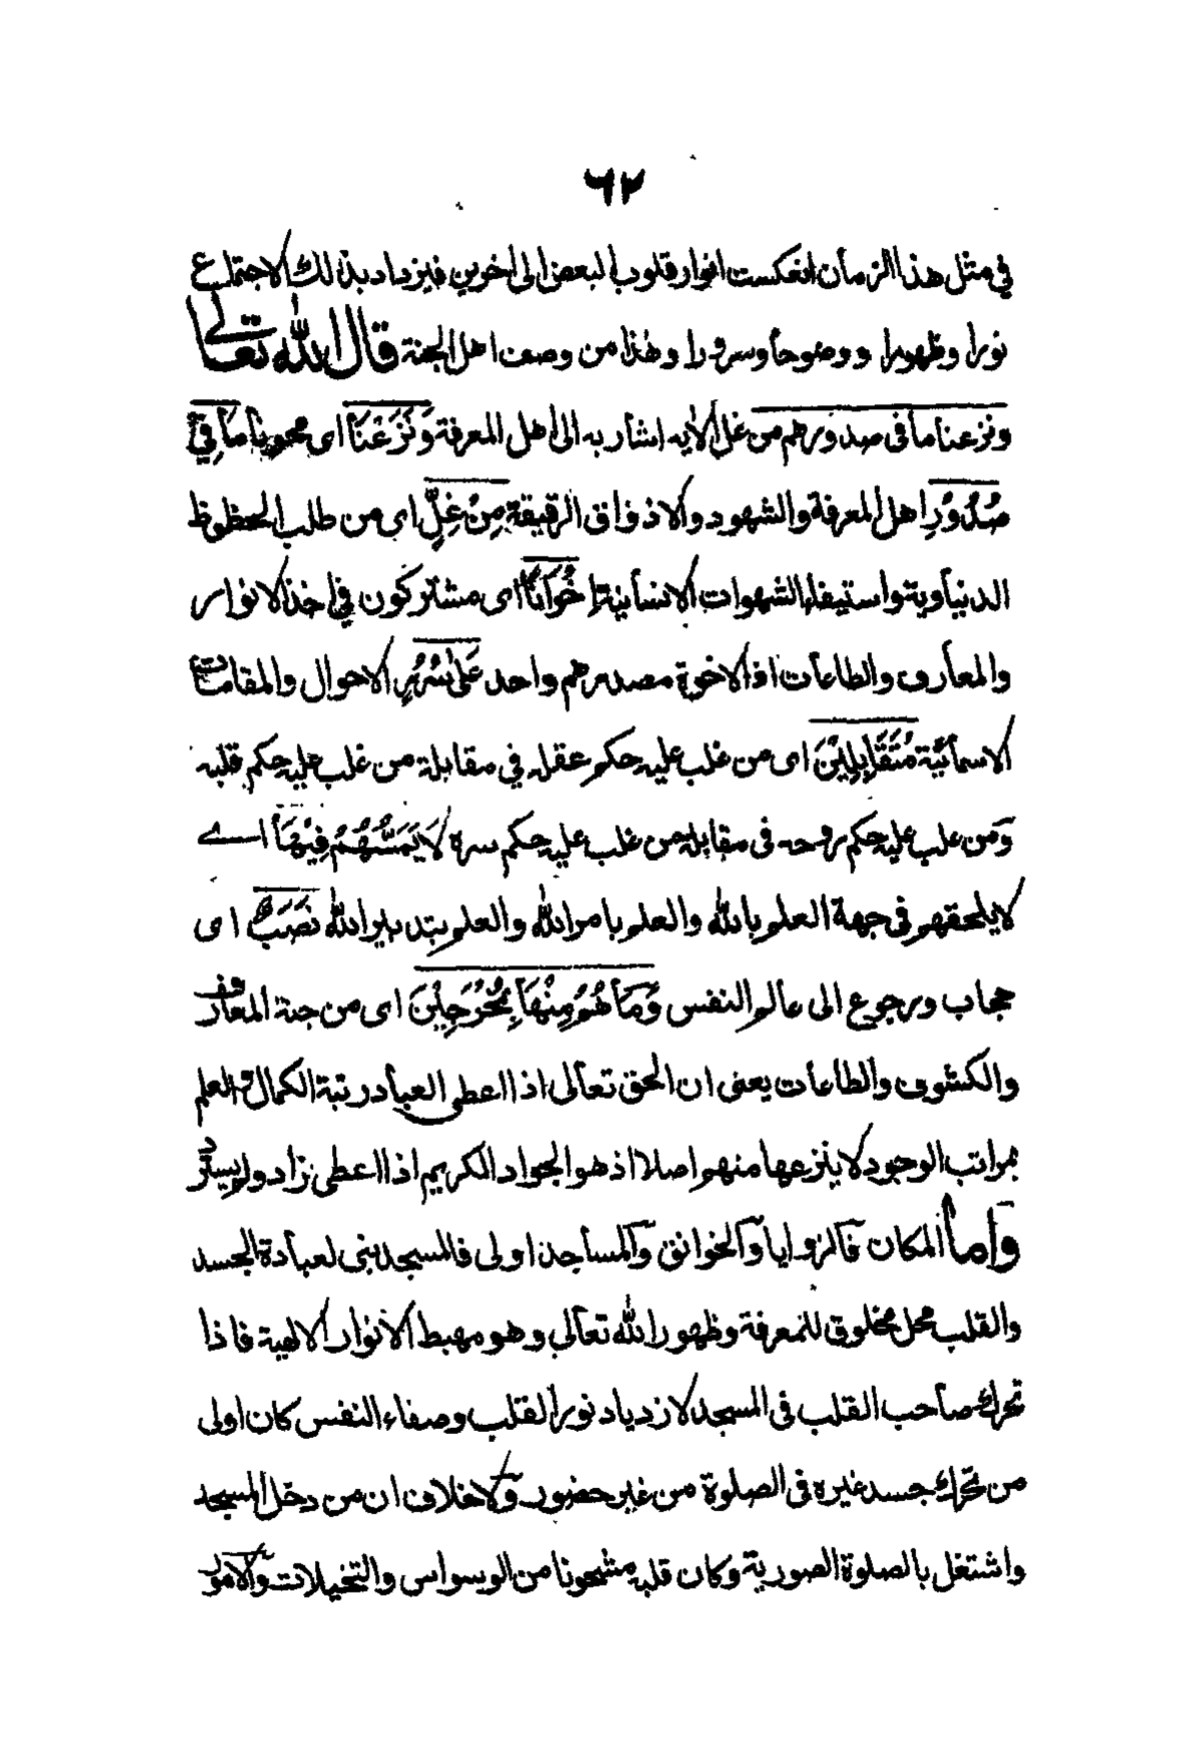 ٦٢
في مثل هذا الزمان انعكست انوار قلوب البعض الى اخوين فيزداد بذلك الاجتماع
نورا وظهورا ووضوحا وسرورا وهذا من وصف اهل الجنة قال الله تعالى
ونزعنا ما فى صدورهم من غل الآيه اشار به الى اهل المعرفة وَنَزَعْنَا اى محونا مَا فِيْ
صُدُوْرِ اهل المعرفة والشهود والاذواق الرقيقة مِنْ غِلٍّ اى من طلب الحظوظ
الدنياوية واستيفاء الشهوات الانسانية اِخْوَانًا اى مشتركون في اخذ الانوار
والمعارف والطاعات اذ الاخوة مصدرهم واحد عَلٰى سُرُرٍ الاحوال والمقامات
الاسمائية مُتَقَابِلِيْنَ اى من غلب عليه حكم عقله في مقابلة من غلب عليه حكم قلبه
وَمن غلب عليه حكم روحه فى مقابلة من غلب عليه حكم سره لَا يَمَسُّهُمْ فِيْهَا اے
لا يلحقهم فى جهة العلم بالله والعلم بامر الله والعلم بتدبير الله نَصَبٌ اى
حجاب ورجوع الى عالم النفس وَمَا هُمْ مِنْهَا بِمُخْرَجِيْنَ اى من جنة المعارف
والكشوف والطاعات يعنى ان الحق تعالى اذا اعطى العباد رتبة الكمال والعلم
بمراتب الوجود لا ينزعها منهم اصلا اذ هو الجواد الكريم اذا اعطى زاد ولم يسترد
واما المكان فالزوايا والخوانق والمساجد اولى فالمسجد بنى لعبادة الجسد
والقلب محل مخلوق للمعرفة وظهور الله تعالى وهو مهبط الانوار الالهية فاذا
تحرك صاحب القلب فى المسجد لازدياد نور القلب وصفاء النفس كان اولى
من تحرك جسد غيره فى الصلوة من غير حضور ولا خلاف ان من دخل المسجد
واشتغل بالصلوة الصورية وكان قلبه مشحونا من الوسواس والتخيلات والامور